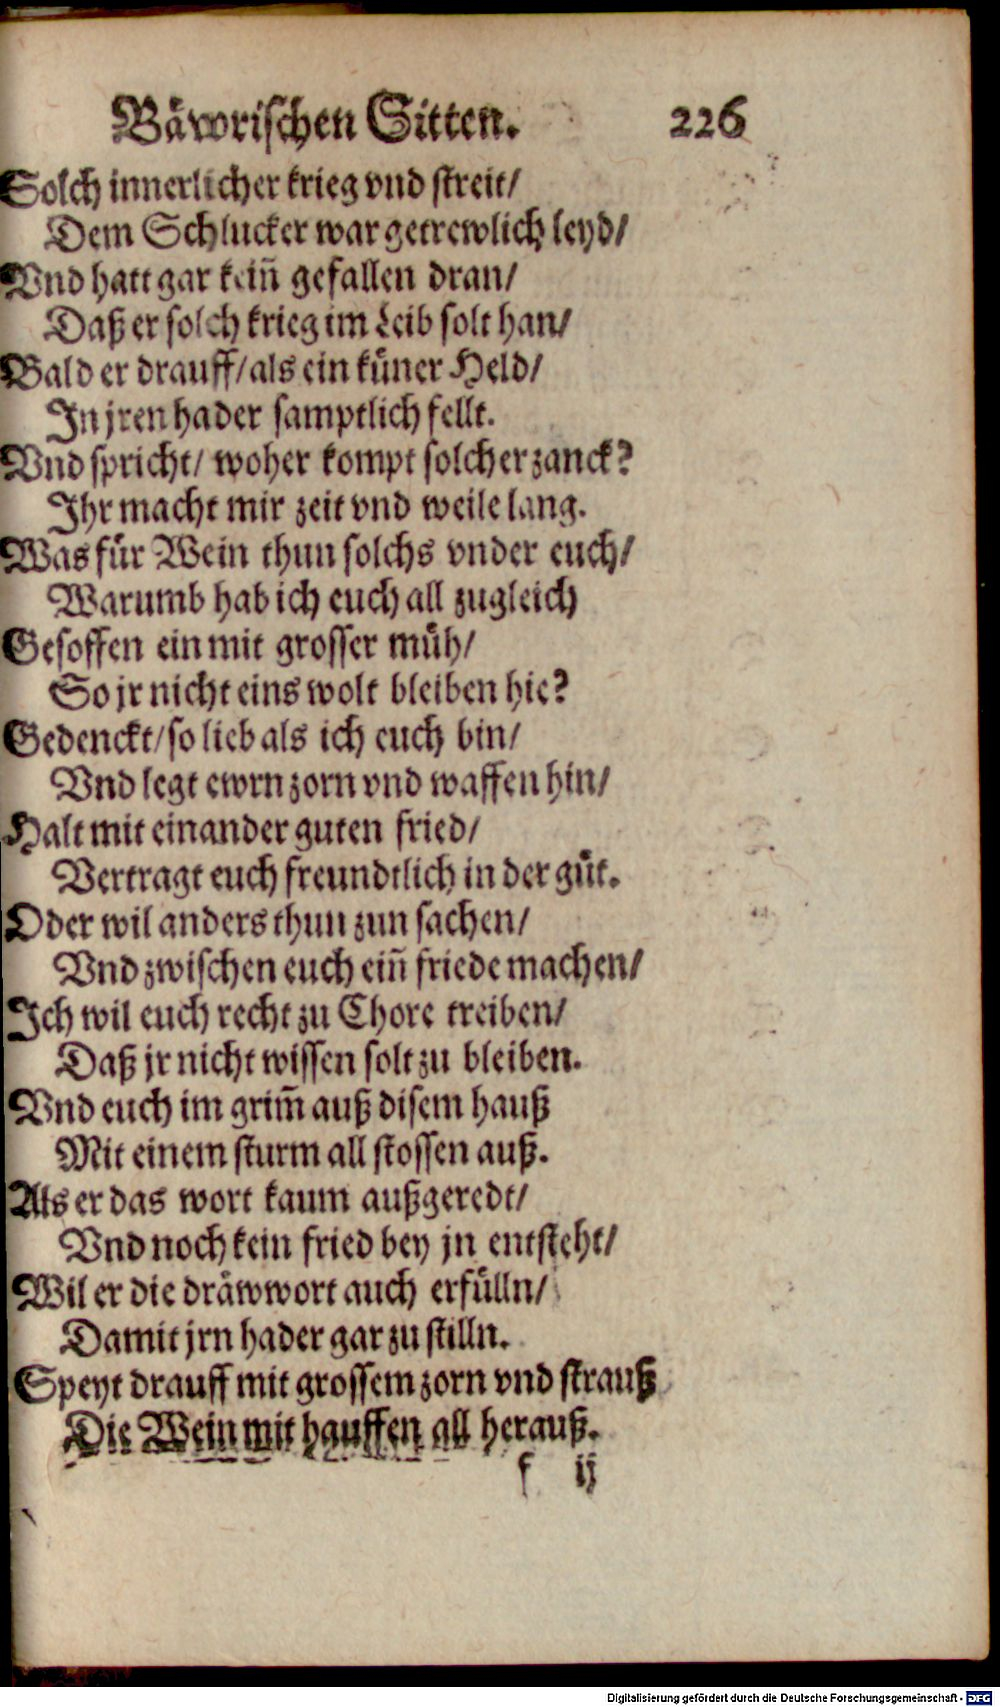 Bäwrischen Sitten. 226
Solch innerlicher krieg vnd streit/
Dem Schlucker war getrewlich leyd/
Vnd hatt gar kein̄ gefallen dran/
Daß er solch krieg im Leib solt han/
Bald er drauff/ als ein küner Held/
In jren hader samptlich fellt.
Vnd spricht/ woher kompt solcher zanck?
Ihr macht mir zeit vnd weile lang.
Was für Wein thun solchs vnder euch/
Warumb hab ich euch all zugleich
Gesoffen ein mit grosser müh/
So jr nicht eins wolt bleiben hie?
Gedenckt/ so lieb als ich euch bin/
Vnd legt ewrn zorn vnd waffen hin/
Halt mit einander guten fried/
Vertragt euch freundtlich in der güt.
Oder wil anders thun zun sachen/
Vnd zwischen euch ein̄ friede machen/
Ich wil euch recht zu Chore treiben/
Daß jr nicht wissen solt zu bleiben.
Vnd euch im grim̄ auß disem hauß
Mit einem sturm all stossen auß.
Als er das wort kaum außgeredt/
Vnd noch kein fried bey jn entsteht/
Wil er die dräwwort auch erfülln/
Damit jrn hader gar zu stilln.
Speyt drauff mit grossem zorn vnd strauß
Die Wein mit hauffen all herauß.
f ij
Digitalisierung gefördert durch die Deutsche Forschungsgemeinschaft - DFG